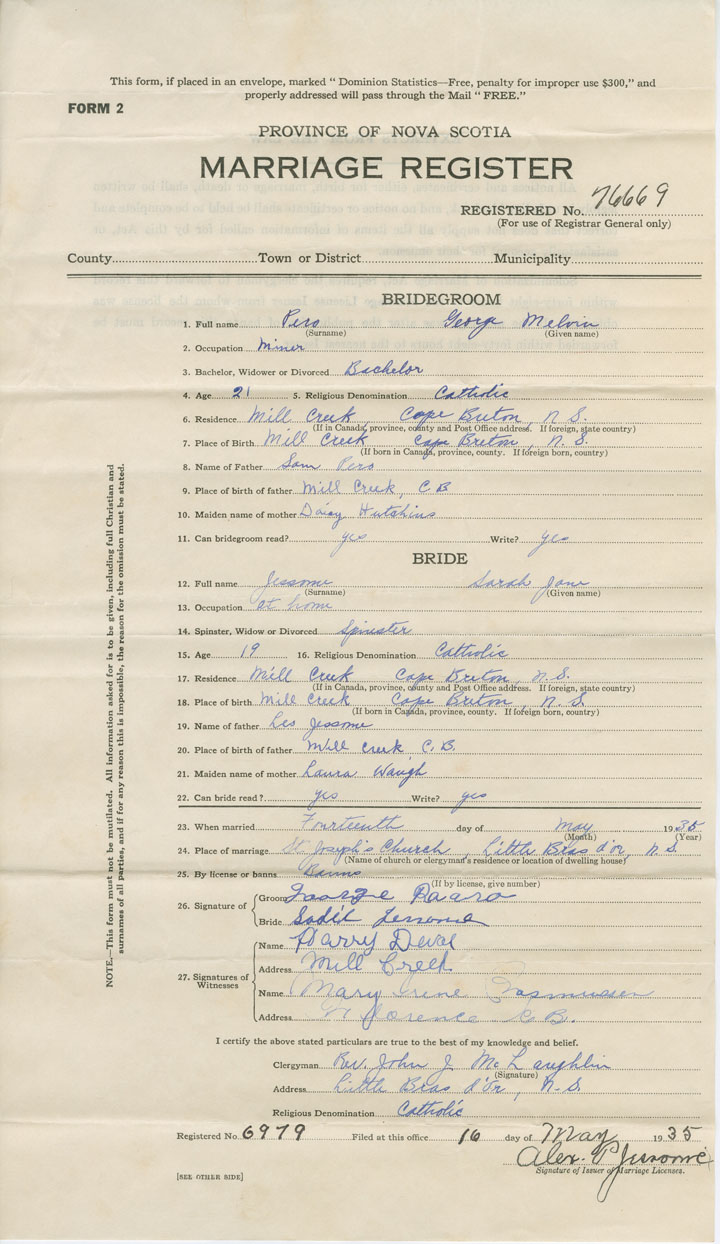 This form, if placed in an envelope, marked “ Dominion Statistics—Free, penalty for improper use $300,” and
properly addressed will pass through the Mail “ FREE.”
FORM 2
PROVINCE OF NOVA SCOTIA
MARRIAGE REGISTER
REGISTERED No. 76669
(For use of Registrar General only)
County Town or District Municipality
BRIDEGROOM
1. Full name Pero George Melvin
(Surname) (Given name)
2. Occupation Miner
3. Bachelor, Widower or Divorced Bachelor
4. Age 21 5. Religious Denomination Catholic
6. Residence Mill Creek, Cape Breton, N.S.
(If in Canada, province, county and Post Office address. If foreign, state country)
7. Place of Birth Mill Creek Cape Breton, N.S.
(If born in Canada, province, county. If foreign born, country)
8. Name of Father Sam Pero
9. Place of birth of father Mill Creek, C B
10. Maiden name of mother Daisy Hutchins
11. Can bridegroom read? yes Write? yes
BRIDE
12. Full name Jessome Sarah Jane
(Surname) (Given name)
13. Occupation at home
14. Spinster, Widow or Divorced Spinster
15. Age 19 16. Religious Denomination Catholic
17. Residence Mill Creek Cape Breton, N.S.
(If in Canada, province, county and Post Office address. If foreign, state country)
18. Place of birth Mill Creek Cape Breton, N.S.
(If born in Canada, province, county. If foreign born, country)
19. Name of father Les Jessome
20. Place of birth of father Mill Creek C.B.
21. Maiden name of mother Laura Waugh
22. Can bride read? yes Write? yes
23. When married Fourteenth day of May 1935
(Month) (Year)
24. Place of marriage St. Joseph's Church, Little Bras d'or, N.S.
(Name of church or clergyman's residence or location of dwelling house)
25. By license or banns Banns
(If by license, give number)
26. Signature of Groom George Paaro
Bride Sadie Jessome
27. Signatures of Witnesses
Name Harry Deval
Address Mill Creek
Name Mary Irene Rasmussen
Address Florence C.B.
I certify the above stated particulars are true to the best of my knowledge and belief.
Clergyman Rev. John J. McLaughlin
(Signature)
Address Little Bras d'Or, N.S.
Religious Denomination Catholic
Registered No. 6979 Filed at this office 16 day of May 1935
Alex. P. Jessome
Signature of Issuer of Marriage Licenses.
[SEE OTHER SIDE]
NOTE.—This form must not be mutilated. All information asked for is to be given, including full Christian and
surnames of all parties, and if for any reason this is impossible, the reason for the omission must be stated.